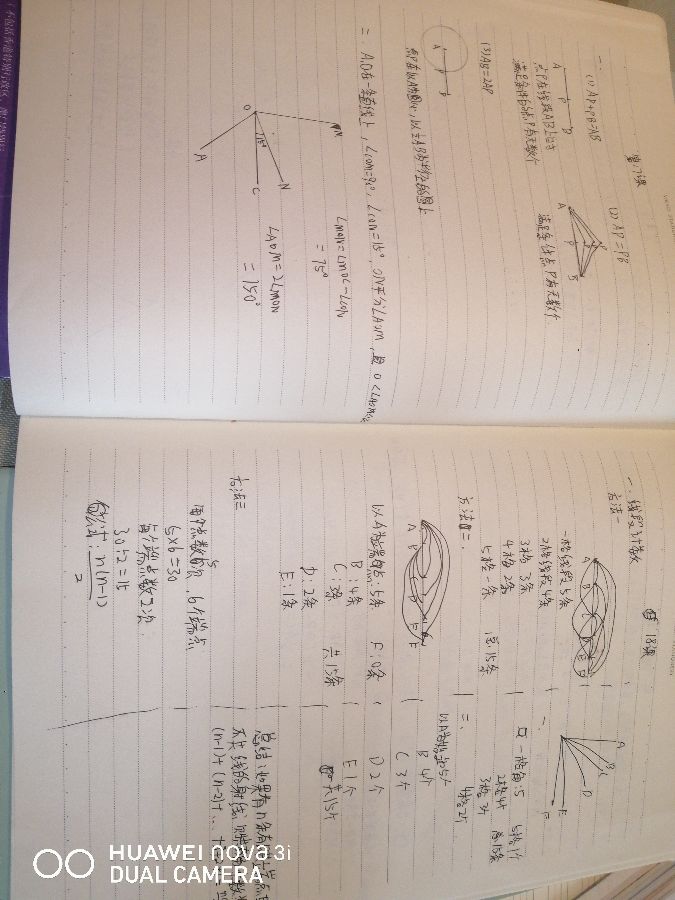 第17课
一、(1) AP+PB=AB
A P B
点P在线段AB上时
满足条件的点P有无数个
(2) AP=PB
A P B
满足条件点P有无数个
(3) AB=2AP
A P B
点P在以A为圆心,以½AB为半径的圆上
二 A,O在一条直线上,∠COM=90°,∠CON=15°,ON平分∠AOM,且0<∠AOM
M O N C A 15°
∠MON=∠MOC-∠CON
=75°
∠AOM=2∠MON
=150°
18课
一、线段计数
方法一
A B C D E F
一格线段5条
2格线段4条
3格 3条
4格 2条
5格一条 共15条
方法二:
A B C D E F
以A为端点:5条
B:4条
C:3条
D:2条
E:1条
F:0条
共15条
方法三
每个点数5次,6个端点
5×6=30
每个端点数2次
30÷2=15
公式:n(n-1)
2
一、
A B C D E F
一格角:5
2格4个
3格3个
4格2个
5格1个
共15条
二、
以A为始边5个
B 4个
C 3个
D 2个
E 1个
共15个
总结:如果有n条有
不共线的射线,则
(n-1)+(n-2)+…+
HUAWEI nova 3i
DUAL CAMERA